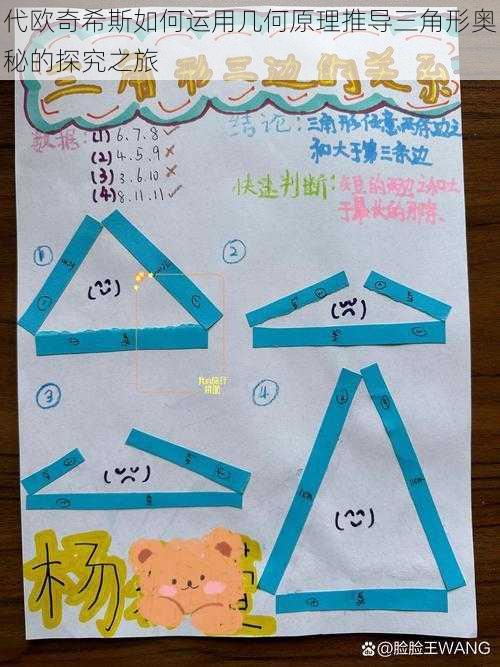 代欧奇希斯如何运用几何原理推导三角形奥
秘的探究之旅
三角形三边的关系
数据: (1) 6.7.8 ✓
(2) 4.5.9 ×
(3) 3.6.10 ×
(4) 8.11.11 ✓
结论: 三角形任意两条边之
和大于第三条边
快速判断: 短的两边之和大
于最长的那条、
①
②
③
④
杨
@脸脸王WANG